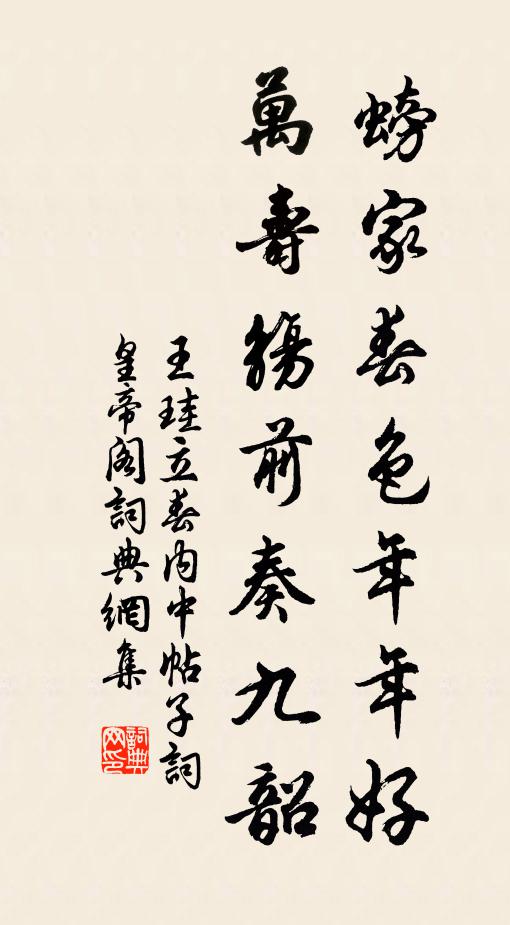 螃家春色年年好
萬壽觴前奏九韶
王珪立春内中帖子詞
皇帝阁詞典網集
詞典网印